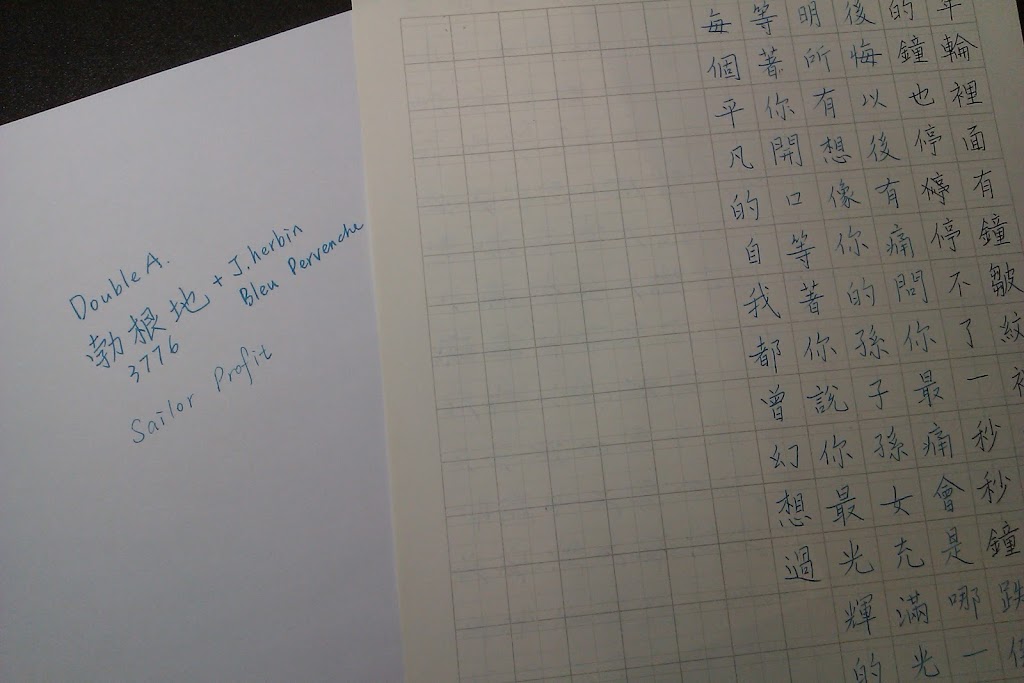 Double A.
勃根地 + J. herbin
3776 Bleu Pervenche
Sailor Profit
年輪裡面有鐘皺紋
的鐘也停停停不了一秒秒鐘跌
後悔以後有痛問你最痛會是哪一
明所有想像你的孫子孫女充滿光
等著你開口等著你說你最光輝的
每個平凡的自我都曾幻想過